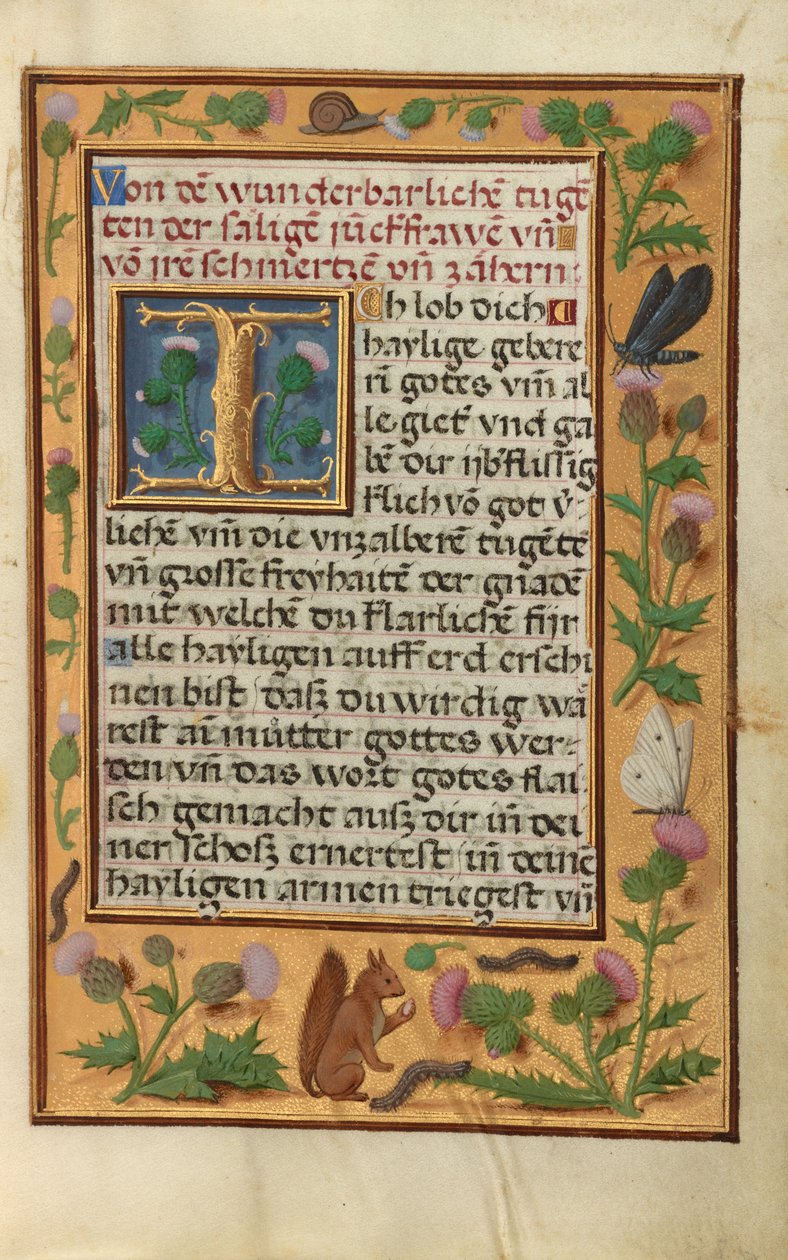 Von dē wunderbarlichē tugē
ten der sāligē jūckfrawē vn̄
vō jrē schmertzē vn̄ zähern:
Ich lob dich
haylige gebere
rī gotes vnn̄ al
le gietʼ vnd ga
bē dir ijbʼflissig
klich vō got vʼ-
lichē vnn̄ die vnzalberē tugētē
vn̄ grosse freyhaitē der gnadē
mit welchē du klarlichē fijr
alle hayligen auff erd erschi
nen bist / dasz du wirdig wā
rest ain můtter gottes wer-
den / vn̄ das wort gotes flai
sch gemacht ausz dir in dei
ner schosz ernertest / in deinē
hayligen armen triegest vn̄